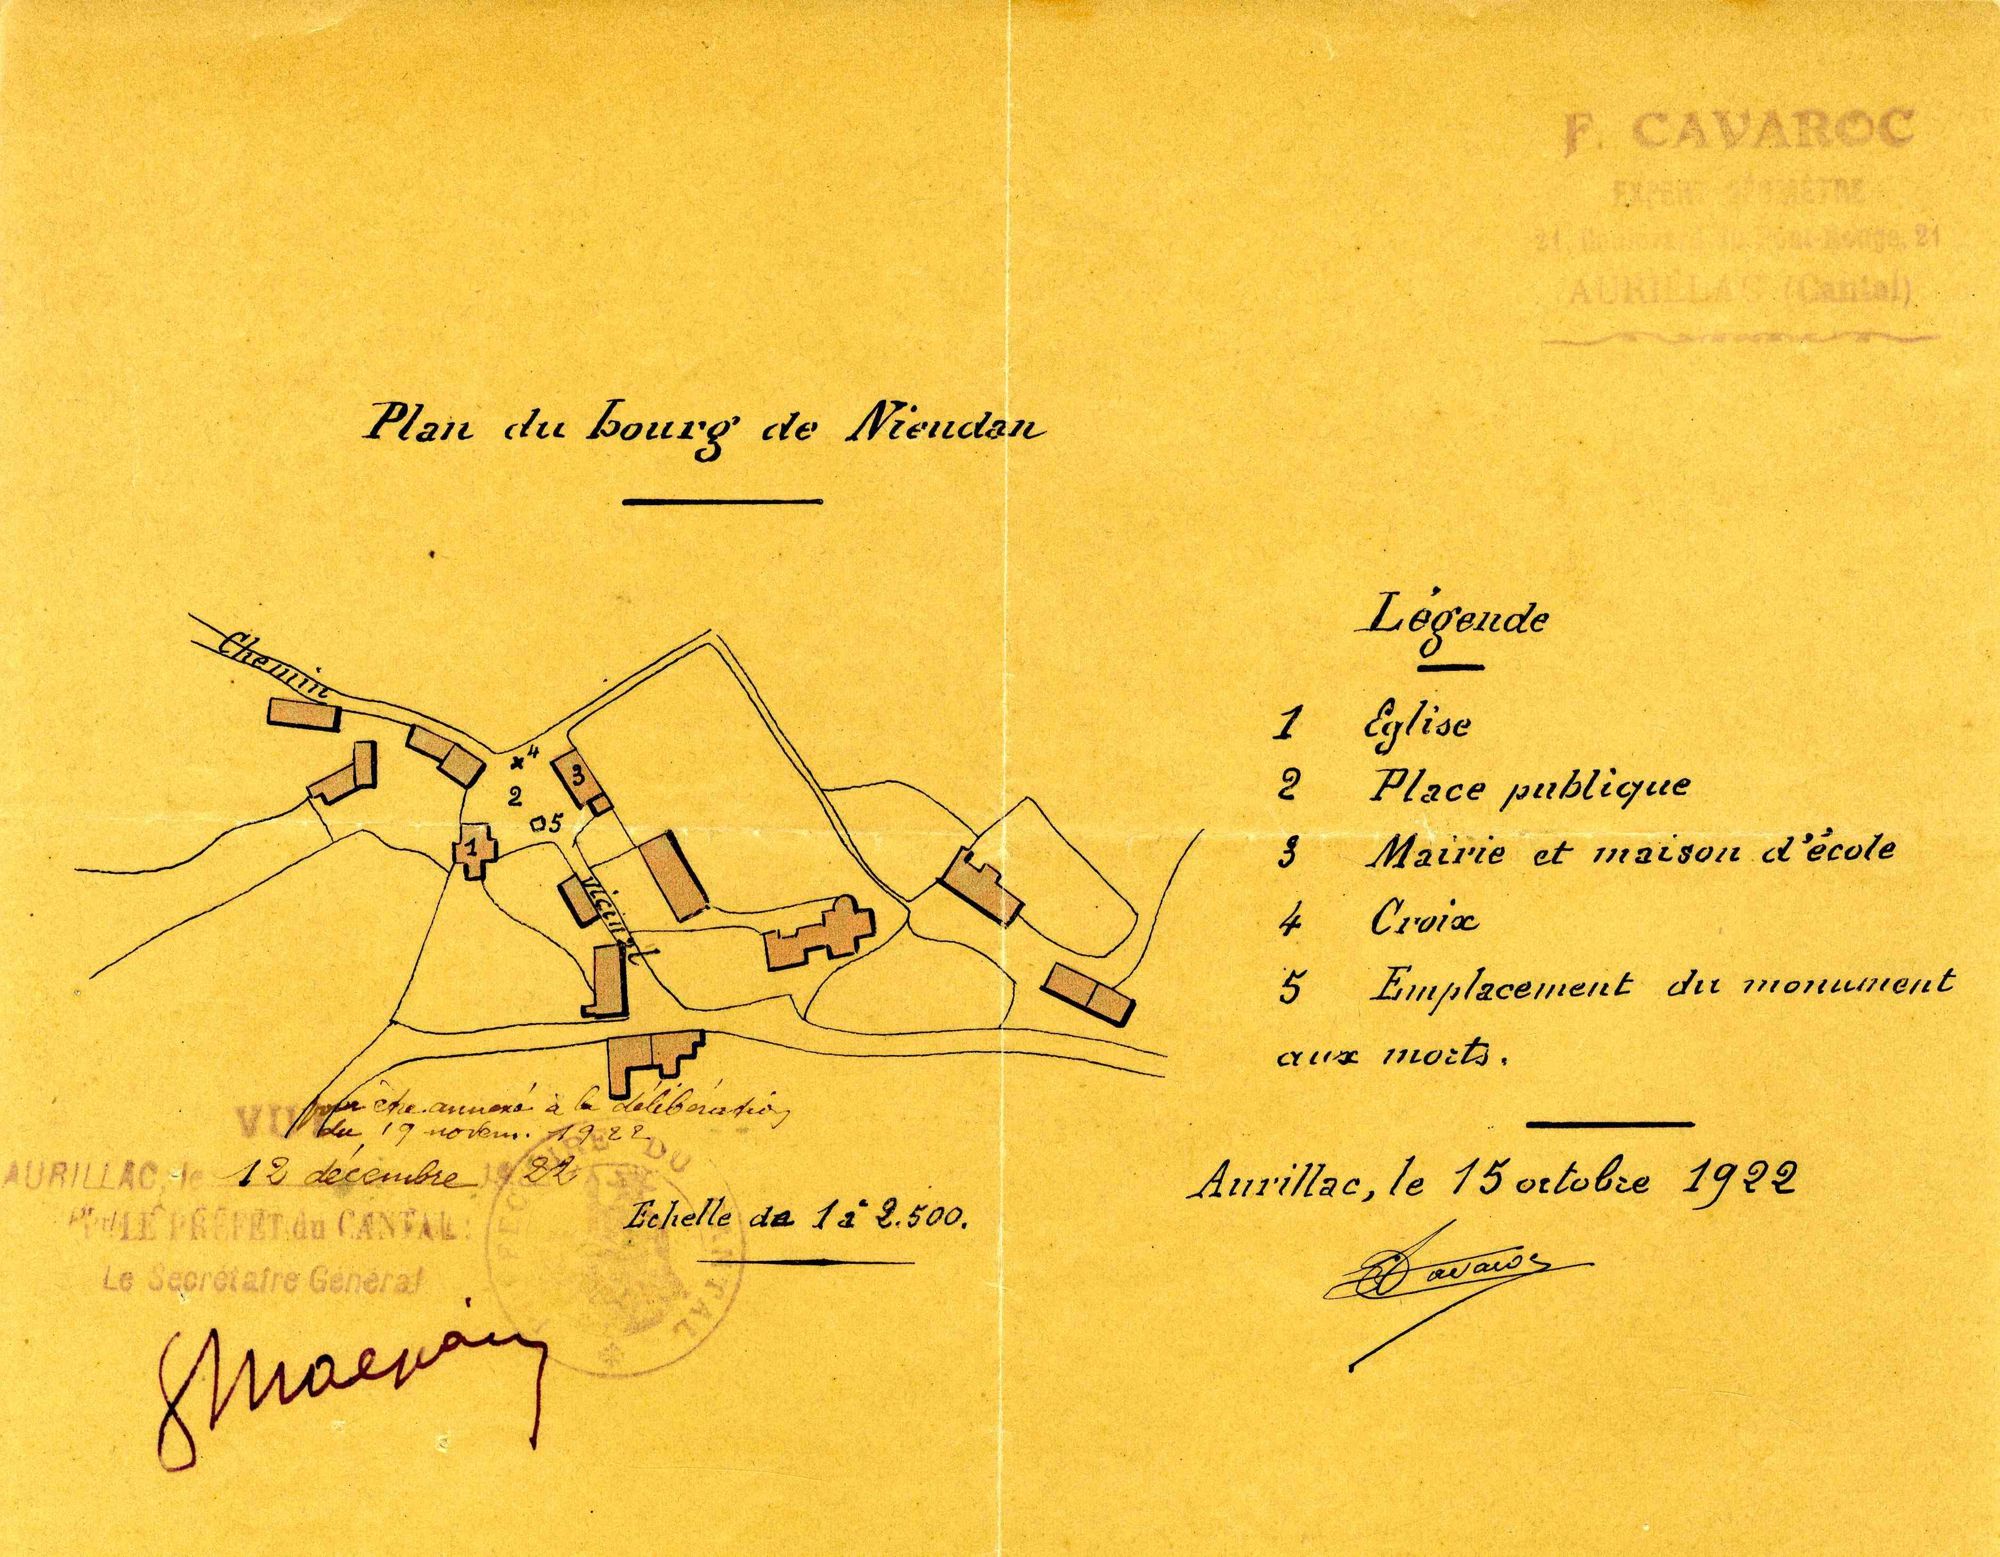 F. CAVAROC
EXPERT GÉOMÈTRE
21, Boulevard du Pont-Rouge, 21
AURILLAC (Cantal)
Plan du bourg de Nieudan
Chemin
vicinal
4
3
2
5
1
Légende
1 Eglise
2 Place publique
3 Mairie et maison d'école
4 Croix
5 Emplacement du monument
aux morts.
Aurillac, le 15 octobre 1922
Cavaroc
Echelle de 1 à 2.500.
VU
pour être annexé à la délibération
du 19 novem. 1922
AURILLAC, le 12 décembre 1922
LE PRÉFET du CANTAL:
Le Secrétaire Général
PRÉFECTURE DU CANTAL